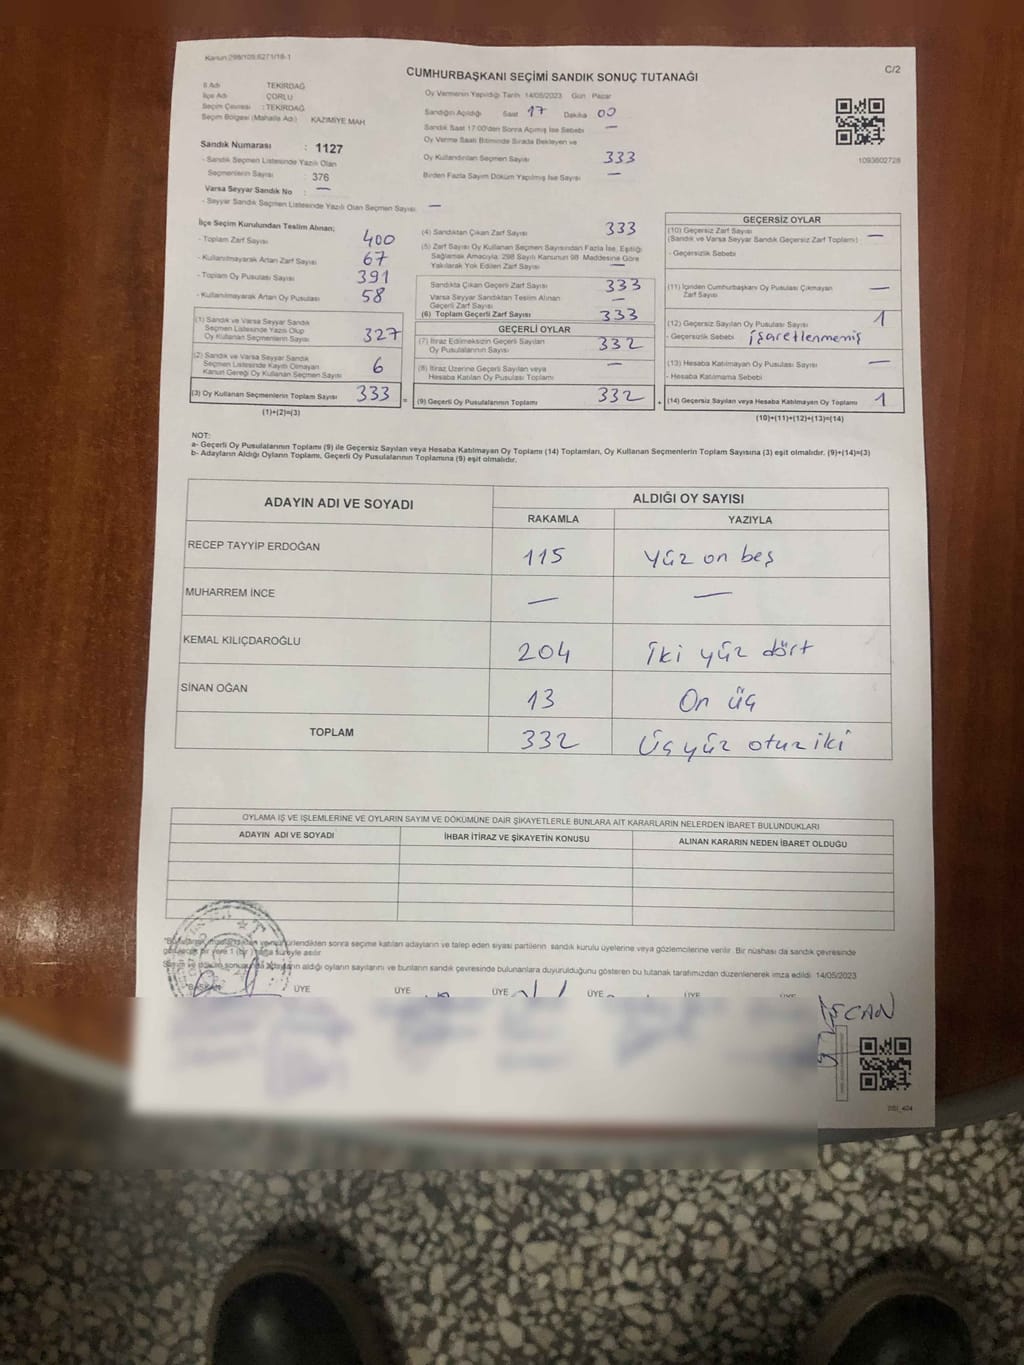 Kanun:298/109;6271/18-1
C/2
CUMHURBAŞKANI SEÇİMİ SANDIK SONUÇ TUTANAĞI
İl Adı TEKİRDAĞ
İlçe Adı ÇORLU
Seçim Çevresi : TEKİRDAĞ
Seçim Bölgesi (Mahalle Adı) KAZIMİYE MAH
Sandık Numarası : 1127
- Sandık Seçmen Listesinde Yazılı Olan
Seçmenlerin Sayısı : 376
Varsa Seyyar Sandık No : —
- Seyyar Sandık Seçmen Listesinde Yazılı Olan Seçmen Sayısı —
Oy Vermenin Yapıldığı Tarih 14/05/2023 Gün Pazar
Sandığın Açıldığı Saat 17 Dakika 00
Sandık Saat 17:00'den Sonra Açılmış İse Sebebi —
Oy Verme Saati Bitiminde Sırada Bekleyen ve
Oy Kullandırılan Seçmen Sayısı 333
Birden Fazla Sayım Döküm Yapılmış İse Sayısı —
1093602728
İlçe Seçim Kurulundan Teslim Alınan;
- Toplam Zarf Sayısı 400
- Kullanılmayarak Artan Zarf Sayısı 67
- Toplam Oy Pusulası Sayısı 391
- Kullanılmayarak Artan Oy Pusulası 58
(1) Sandık ve Varsa Seyyar Sandık
Seçmen Listesinde Yazılı Olup
Oy Kullanan Seçmenlerin Sayısı 327
(2) Sandık ve Varsa Seyyar Sandık
Seçmen Listesinde Kayıtlı Olmayan
Kanun Gereği Oy Kullanan Seçmen Sayısı 6
(3) Oy Kullanan Seçmenlerin Toplam Sayısı 333 =
(1)+(2)=(3)
(4) Sandıktan Çıkan Zarf Sayısı 333
(5) Zarf Sayısı Oy Kullanan Seçmen Sayısından Fazla İse, Eşitliği
Sağlamak Amacıyla; 298 Sayılı Kanunun 98. Maddesine Göre
Yakılarak Yok Edilen Zarf Sayısı —
Sandıkta Çıkan Geçerli Zarf Sayısı 333
Varsa Seyyar Sandıktan Teslim Alınan
Geçerli Zarf Sayısı —
(6) Toplam Geçerli Zarf Sayısı 333
GEÇERLİ OYLAR
(7) İtiraz Edilmeksizin Geçerli Sayılan
Oy Pusulalarının Sayısı 332
(8) İtiraz Üzerine Geçerli Sayılan veya
Hesaba Katılan Oy Pusulası Toplamı —
(9) Geçerli Oy Pusulalarının Toplamı 332 +
GEÇERSİZ OYLAR
(10) Geçersiz Zarf Sayısı
(Sandık ve Varsa Seyyar Sandık Geçersiz Zarf Toplamı) —
- Geçersizlik Sebebi
(11) İçinden Cumhurbaşkanı Oy Pusulası Çıkmayan
Zarf Sayısı —
(12) Geçersiz Sayılan Oy Pusulası Sayısı 1
- Geçersizlik Sebebi işaretlenmemiş
(13) Hesaba Katılmayan Oy Pusulası Sayısı —
- Hesaba Katılmama Sebebi
(14) Geçersiz Sayılan veya Hesaba Katılmayan Oy Toplamı 1
(10)+(11)+(12)+(13)=(14)
NOT:
a- Geçerli Oy Pusulalarının Toplamı (9) ile Geçersiz Sayılan veya Hesaba Katılmayan Oy Toplamı (14) Toplamları, Oy Kullanan Seçmenlerin Toplam Sayısına (3) eşit olmalıdır. (9)+(14)=(3)
b- Adayların Aldığı Oyların Toplamı, Geçerli Oy Pusulalarının Toplamına (9) eşit olmalıdır.
ADAYIN ADI VE SOYADI ALDIĞI OY SAYISI
RAKAMLA YAZIYLA
RECEP TAYYİP ERDOĞAN 115 yüz on beş
MUHARREM İNCE — —
KEMAL KILIÇDAROĞLU 204 iki yüz dört
SİNAN OĞAN 13 On üç
TOPLAM 332 Üç yüz otuz iki
OYLAMA İŞ VE İŞLEMLERİNE VE OYLARIN SAYIM VE DÖKÜMÜNE DAİR ŞİKAYETLERLE BUNLARA AİT KARARLARIN NELERDEN İBARET BULUNDUKLARI
ADAYIN ADI VE SOYADI İHBAR İTİRAZ VE ŞİKAYETİN KONUSU ALINAN KARARIN NEDEN İBARET OLDUĞU
sonra seçime katılan adayların ve talep eden siyasi partilerin sandık kurulu üyelerine veya gözlemcilerine verilir. Bir nüshası da sandık çevresinde
adayların aldığı oyların sayılarını ve bunların sandık çevresinde bulunanlara duyurulduğunu gösteren bu tutanak tarafımızdan düzenlenerek imza edildi. 14/05/2023
BAŞKAN ÜYE ÜYE ÜYE ÜYE ÜYE ÜYE